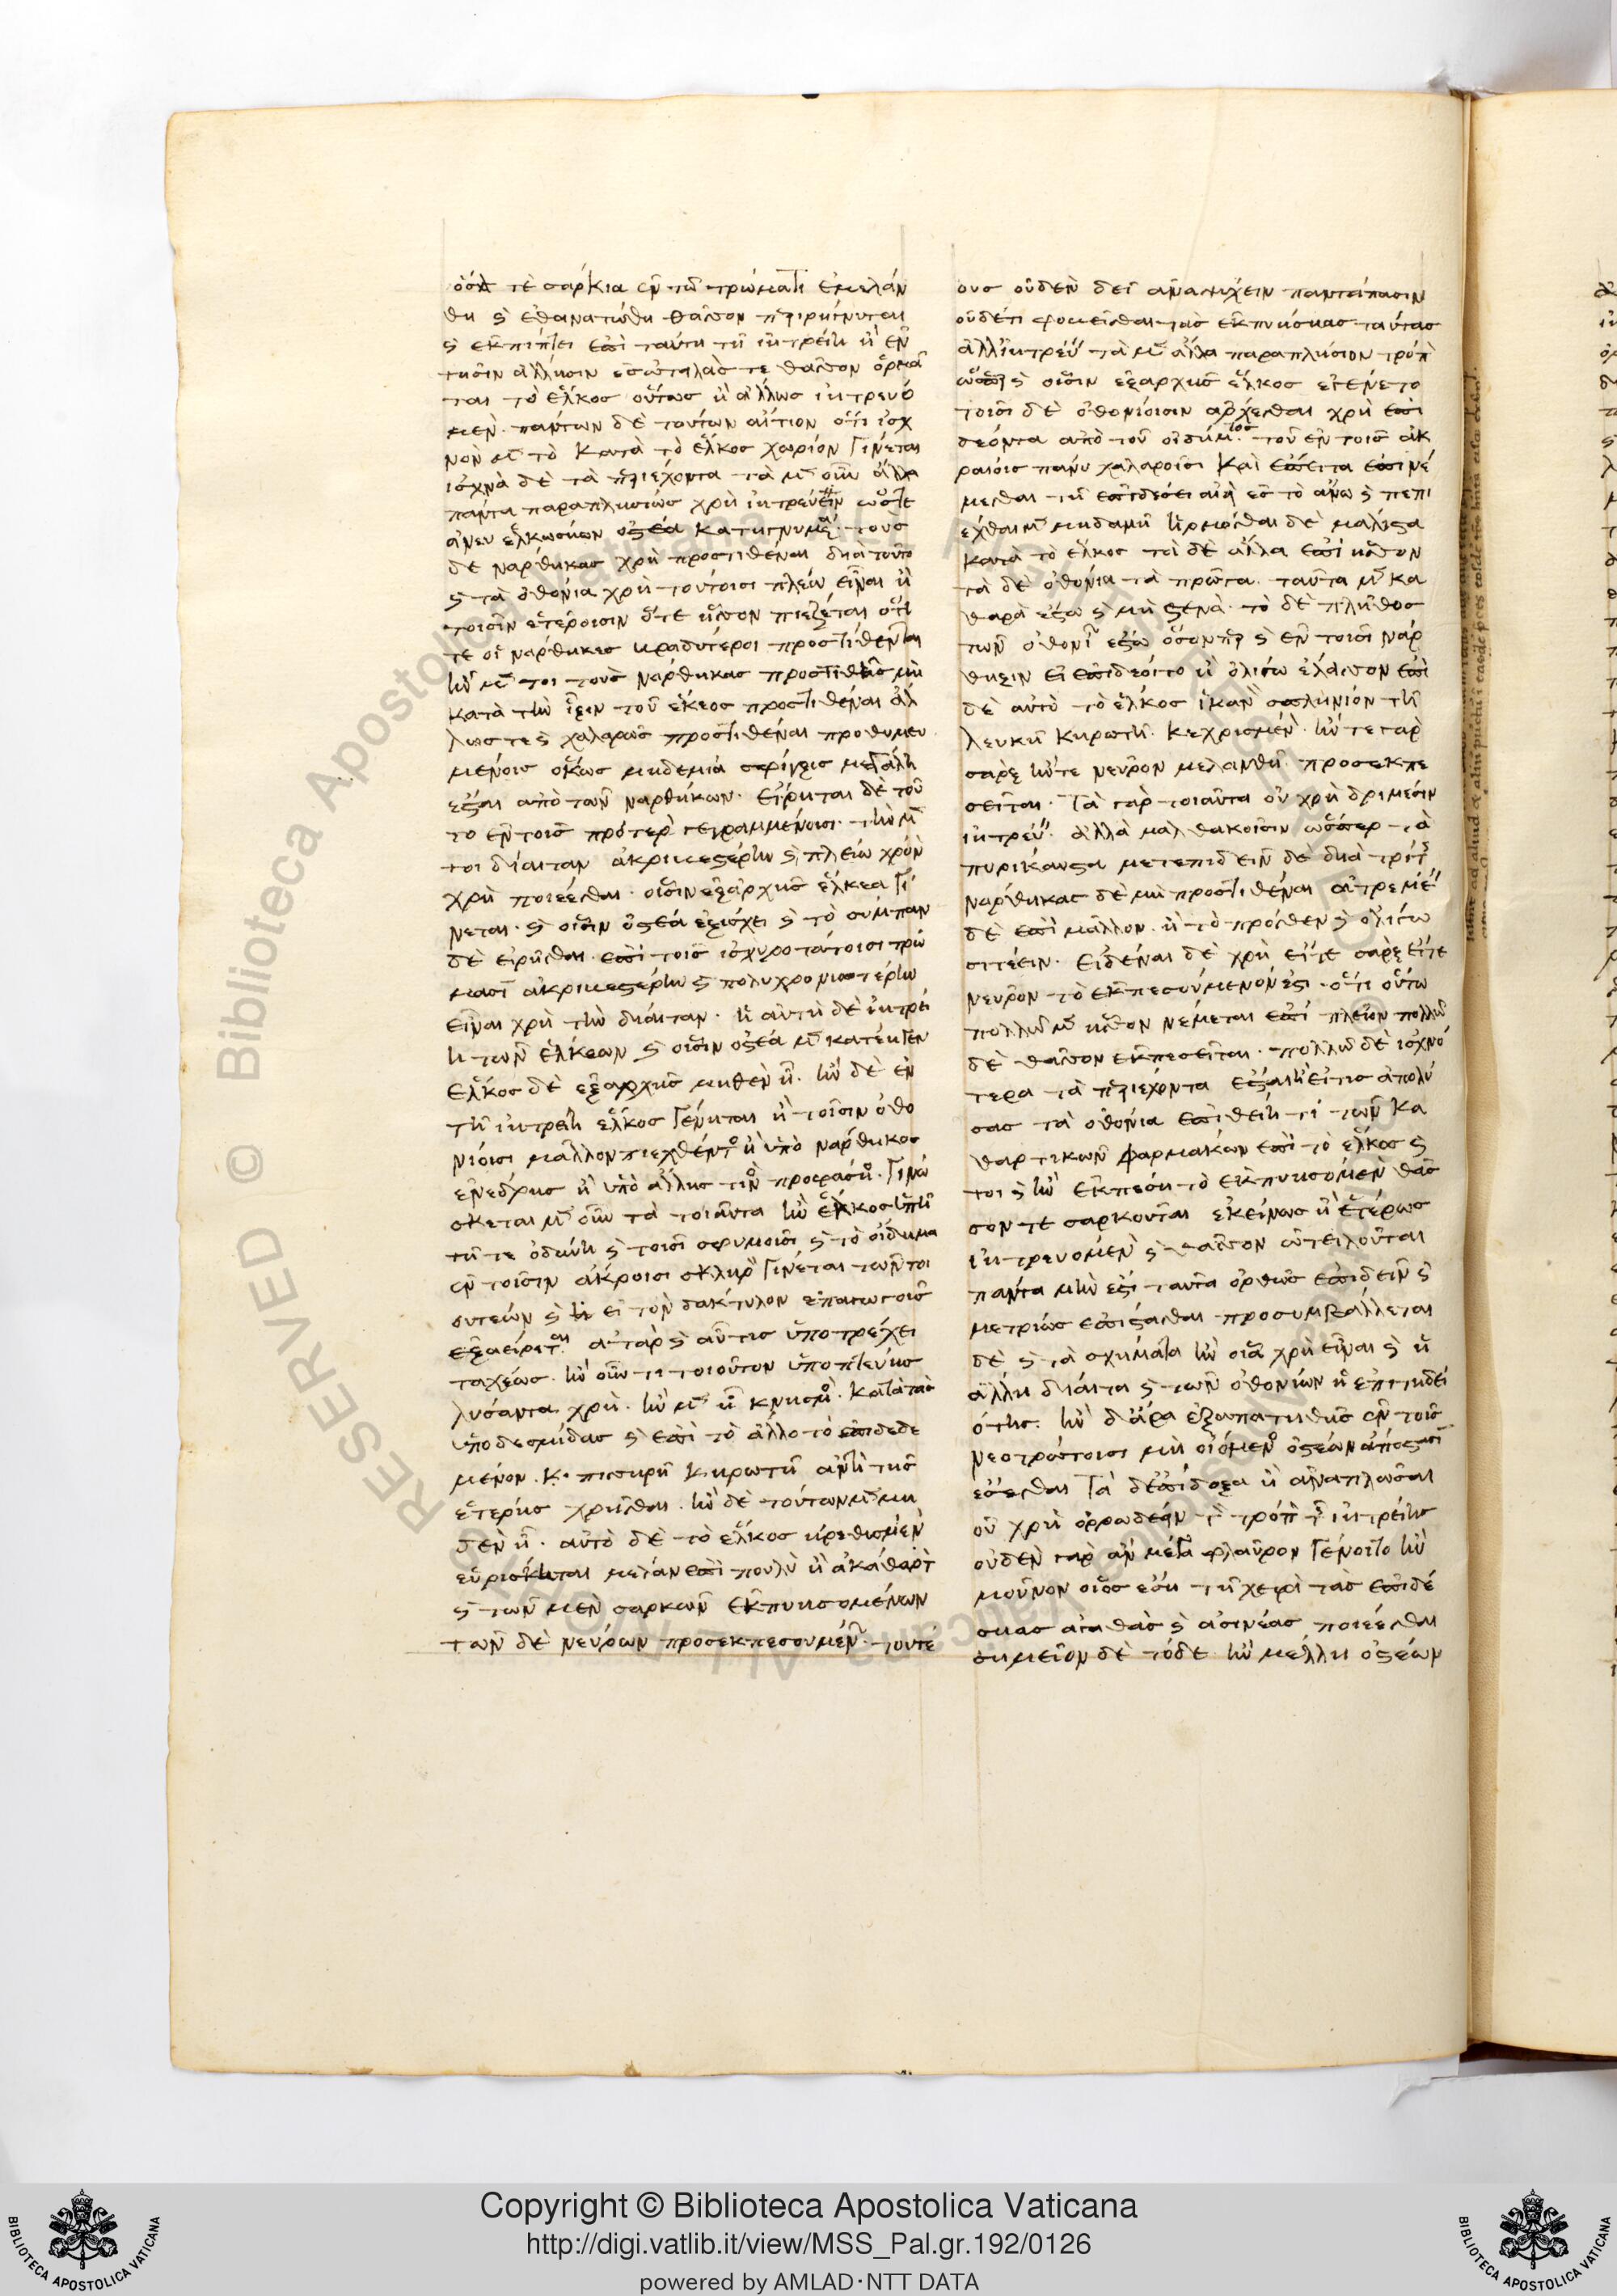 ὁόσα τὲ σαρκία ἐν τῶ τρώματι ἐμελάν
θη καὶ ἐθανατώθη θᾶσσον περιρήγνυται
καὶ ἐκπίπτει ἐπὶ ταύτη τῆ ἰητρείη ἢ ἐν
τῆσιν ἄλλησιν ἐς ὠτειλάς τε θᾶσσον ὁρμᾶ
ται τὸ ἕλκος οὕτως ἢ ἄλλως ἰητρευό
μεν. πάντων δὲ τουτων αἴτιον ὅτι ἰσχ
νὸν μὲν τὸ κατὰ τὸ ἕλκος χωρίον γίνεται
ἰσχνὰ δὲ τὰ περιέχοντα τὰ μὲν οὖν ἄλλα
παντα παραπλησίως χρὴ ἰητρεύειν ὥστε
ἄνευ ἑλκωσίων ὀστέα κατηγνυμενα. τοὺς
δὲ νάρθηκας χρὴ προστιθέναι διὰ τοῦτο
καὶ τὰ ὀθόνια χρὴ τουτοισι πλείω εἶναι ἢ
τοισιν ἑτέροισιν ὅτε ἧσσον πιέζεται ὅτι
τε οἱ νάρθηκες βραδυτέροι προστιθενται
ἢν μέν τοι τοὺς νάρθηκας προστιθῆς μὴ
κατὰ τὴν ἴξιν τοῦ ἕκεος προστιθέναι ἄλ
λως τε καὶ χαλαρῶς προστιθέναι προθυμευ
μένοις ὅκως μηδεμία σφίγξις μεγάλη
ἔσται ἀπὸ τῶν ναρθήκων. εἴρηται δὲ τοῦ
το ἐν τοῖς πρότερ γεγραμμένοισι. τὴν μέν
τοι δίαιταν ἀκριβεστέρην καὶ πλείω χρόν
χρὴ ποιέεσθαι. οἷσιν ἐξ ἀρχῆς ἕλκεα γί
νεται. καὶ οἷσιν ὀστέα ἐξισχει καὶ τὸ σύμπαν
δὲ εἰρῆσθαι ἐπὶ τοῖς ἰσχυροτάτοισι τρώ
μασι ἀκριβεστέρην καὶ πολυχρονιωτέρην
εἶναι χρὴ τὴν δίαιταν. ἡ αὐτὴ δὲ ἰητρεί
η τῶν ἑλκέων καὶ οἷσιν ὀστέα μὲν κατέηγεν
ἕλκος δὲ ἐξαρχῆς μηθὲν ἦ. ἢν δὲ ἐν
τῆ ἰητρείη ἕλκος γένηται ἢ τοῖσιν ὀθο
νίοισι μᾶλλον πιεχθέντος ἢ ὑπὸ νάρθηκος
ἐνέδρης ἢ ὑπὸ ἄλλης τινὸς προφάσιος. γινώ
σκεται μὲν οὖν τὰ τοιαῦτα ἢν ἕλκος ὑπῆ
τῆ τε ὀδύνη καὶ τοῖσι σφυγμοῖσι καὶ τὸ οἴδημα
ἐν τοῖσιν ἄκροισι σκληρ γίνεται τῶν τοι
ουτέων καὶ εἰ τὸν δάκτυλον ἐπάγοις
ἐξαείρεται. ἀτὰρ καὶ αὖτις ὑποτρέχει
ταχέως. ἢν οὖν τι τοιοῦτον ὑποπτεύης
λύσαντα χρὴ. ἢν μὲν ἦ κνησμὸς. κατὰ τὰς
ὑποδεσμίδας καὶ ἐπὶ τὸ ἄλλο τὸ ἐπιδεδε
μένον. κ. πισηρῆ κηρωτῆ ἀντὶ τῆς
ἑτέρης χρῆσθαι. ἢν δὲ τούτων μὲν μη
δὲν ἦ. αὐτὸ δὲ τὸ ἕλκος ἠρεθισμέν
εὑρίσκηται μέλαν ἐπὶ πουλὺ ἢ ἀκάθαρτ
καὶ τῶν μὲν σαρκῶν ἐκπυησομένων
τῶν δὲ νεύρων προσεκπεσουμέν. τουτέ
ους οὐδὲν δεῖ ἀναψύχειν παντάπασιν
οὐδέτι φοβεῖσθαι τὰς ἐκπυήσιας ταύτας
ἀλλ᾽ ἰητρεύειν τὰ μὲν ἄλλα παραπλήσιον τρόπ
ὥσπερ καὶ οἷσιν ἐξαρχῆς ἕλκος ἐγένετο
τοῖσι δὲ ὀθονίοισιν ἄρχεσθαι χρὴ ἐπι
δέοντα ἀπὸ τοῦ οἰδήματος τοῦ ἐν τοῖς ἀκ
ραίοις πάνυ χαλαροῖσι καὶ ἔπειτα ἐπινέ
μεσθαι τῆ ἐπιδέσει αἰεὶ ἐς τὸ ἄνω καὶ πεπι
έχθαι μὲν μηδαμῆ ἡρμόσθαι δὲ μάλιστα
κατὰ τὸ ἕλκος τὰ δὲ ἄλλα ἐπὶ ἧσσον
τὰ δὲ ὀθόνια τὰ πρῶτα ταῦτα μὲν κα
θαρὰ ἔστω καὶ μὴ στενά. τὸ δὲ πλῆθος
τῶν ὀθονί ἔστω ὅσον περ καὶ ἐν τοῖσι νάρ
θηξιν εἰ ἐπιδέοιτο ἢ ὀλίγω ἔλασσον ἐπὶ
δὲ αὐτὸ τὸ ἕλκος ἱκανὸν σπληνίον τῆ
λευκῆ κηρωτῆ. κεχρισμέν. ἤν τε γὰρ
σὰρξ ἤν τε νεῦρον μελανθῆ. προσεκπε
σεῖται. τὰ γὰρ τοιαῦτα οὐ χρὴ δριμέσιν
ἰητρεύειν. ἀλλὰ μαλθακοῖσιν ὥσπερ τὰ
πυρίκαυστα μετεπιδεῖν δὲ διὰ τρίτης
νάρθηκας δὲ μὴ προστιθέναι ἀτρεμέειν
δὲ ἐπὶ μᾶλλον. ἢ τὸ πρόσθεν καὶ ὀλίγω
σιτέειν. εἰδέναι δὲ χρὴ εἴτε σὰρξ εἴτε
νεῦρον τὸ ἐκπεσούμενόν ἐστι. ὅτι οὕτω
πολλῶ μὲν ἧσσον νέμεται ἐπὶ πλεῖον πολλῶ
δὲ θᾶσσον ἐκπεσεῖται. πολλῶ δὲ ἰσχνό
τερα τὰ περιέχοντα ἔσται ἢ εἴτις ἀπολύ
σας τὰ ὀθόνια ἐπιθείη τι τῶν κα
θαρτικῶν φαρμάκων ἐπὶ τὸ ἕλκος καὶ
τοι καὶ ἢν ἐκπέση τὸ ἐκπυησόμεν θᾶσ
σον τε σαρκοῦται ἐκείνως ἢ ἑτέρως
ἰητρευόμεν καὶ θᾶσσον ὠτειλοῦται
πάντα μὴν ἐστὶ ταῦτα ὀρθῶς ἐπιδεῖν καὶ
μετρίως ἐπίστασθαι προσυμβάλλεται
δὲ καὶ τὰ σχήματα ἢν οἷα χρὴ εἶναι καὶ ἡ
ἄλλη δίαιτα καὶ τῶν ὀθονίων ἡ ἐπιτηδεί
ότης. ἢν δ᾽ ἄρα ἐξαπατηθῆς ἐν τοῖς
νεοτρώτοισι μὴ οἰόμενος ὀστέων ἀπόστασιν
ἔσεσθαι τὰ δ᾽ ἐπίδοξα ἢ ἀναπλῶσαι
οὐ χρὴ ὀρρωδέειν τὸν τρόπον τῆς ἰητρείης
οὐδὲν γὰρ ἂν μέγα φλαῦρον γένοιτο ἢν
μοῦνον οἷος ἔση τῆ χειρὶ τὰς ἐπιδέ
σιας ἀγαθὰς καὶ ἀσινέας ποιέεσθαι
σημεῖον δὲ τόδε ἢν μέλλη ὀστέων
Copyright © Biblioteca Apostolica Vaticana
http://digi.vatlib.it/view/MSS_Pal.gr.192/0126
powered by AMLAD·NTT DATA